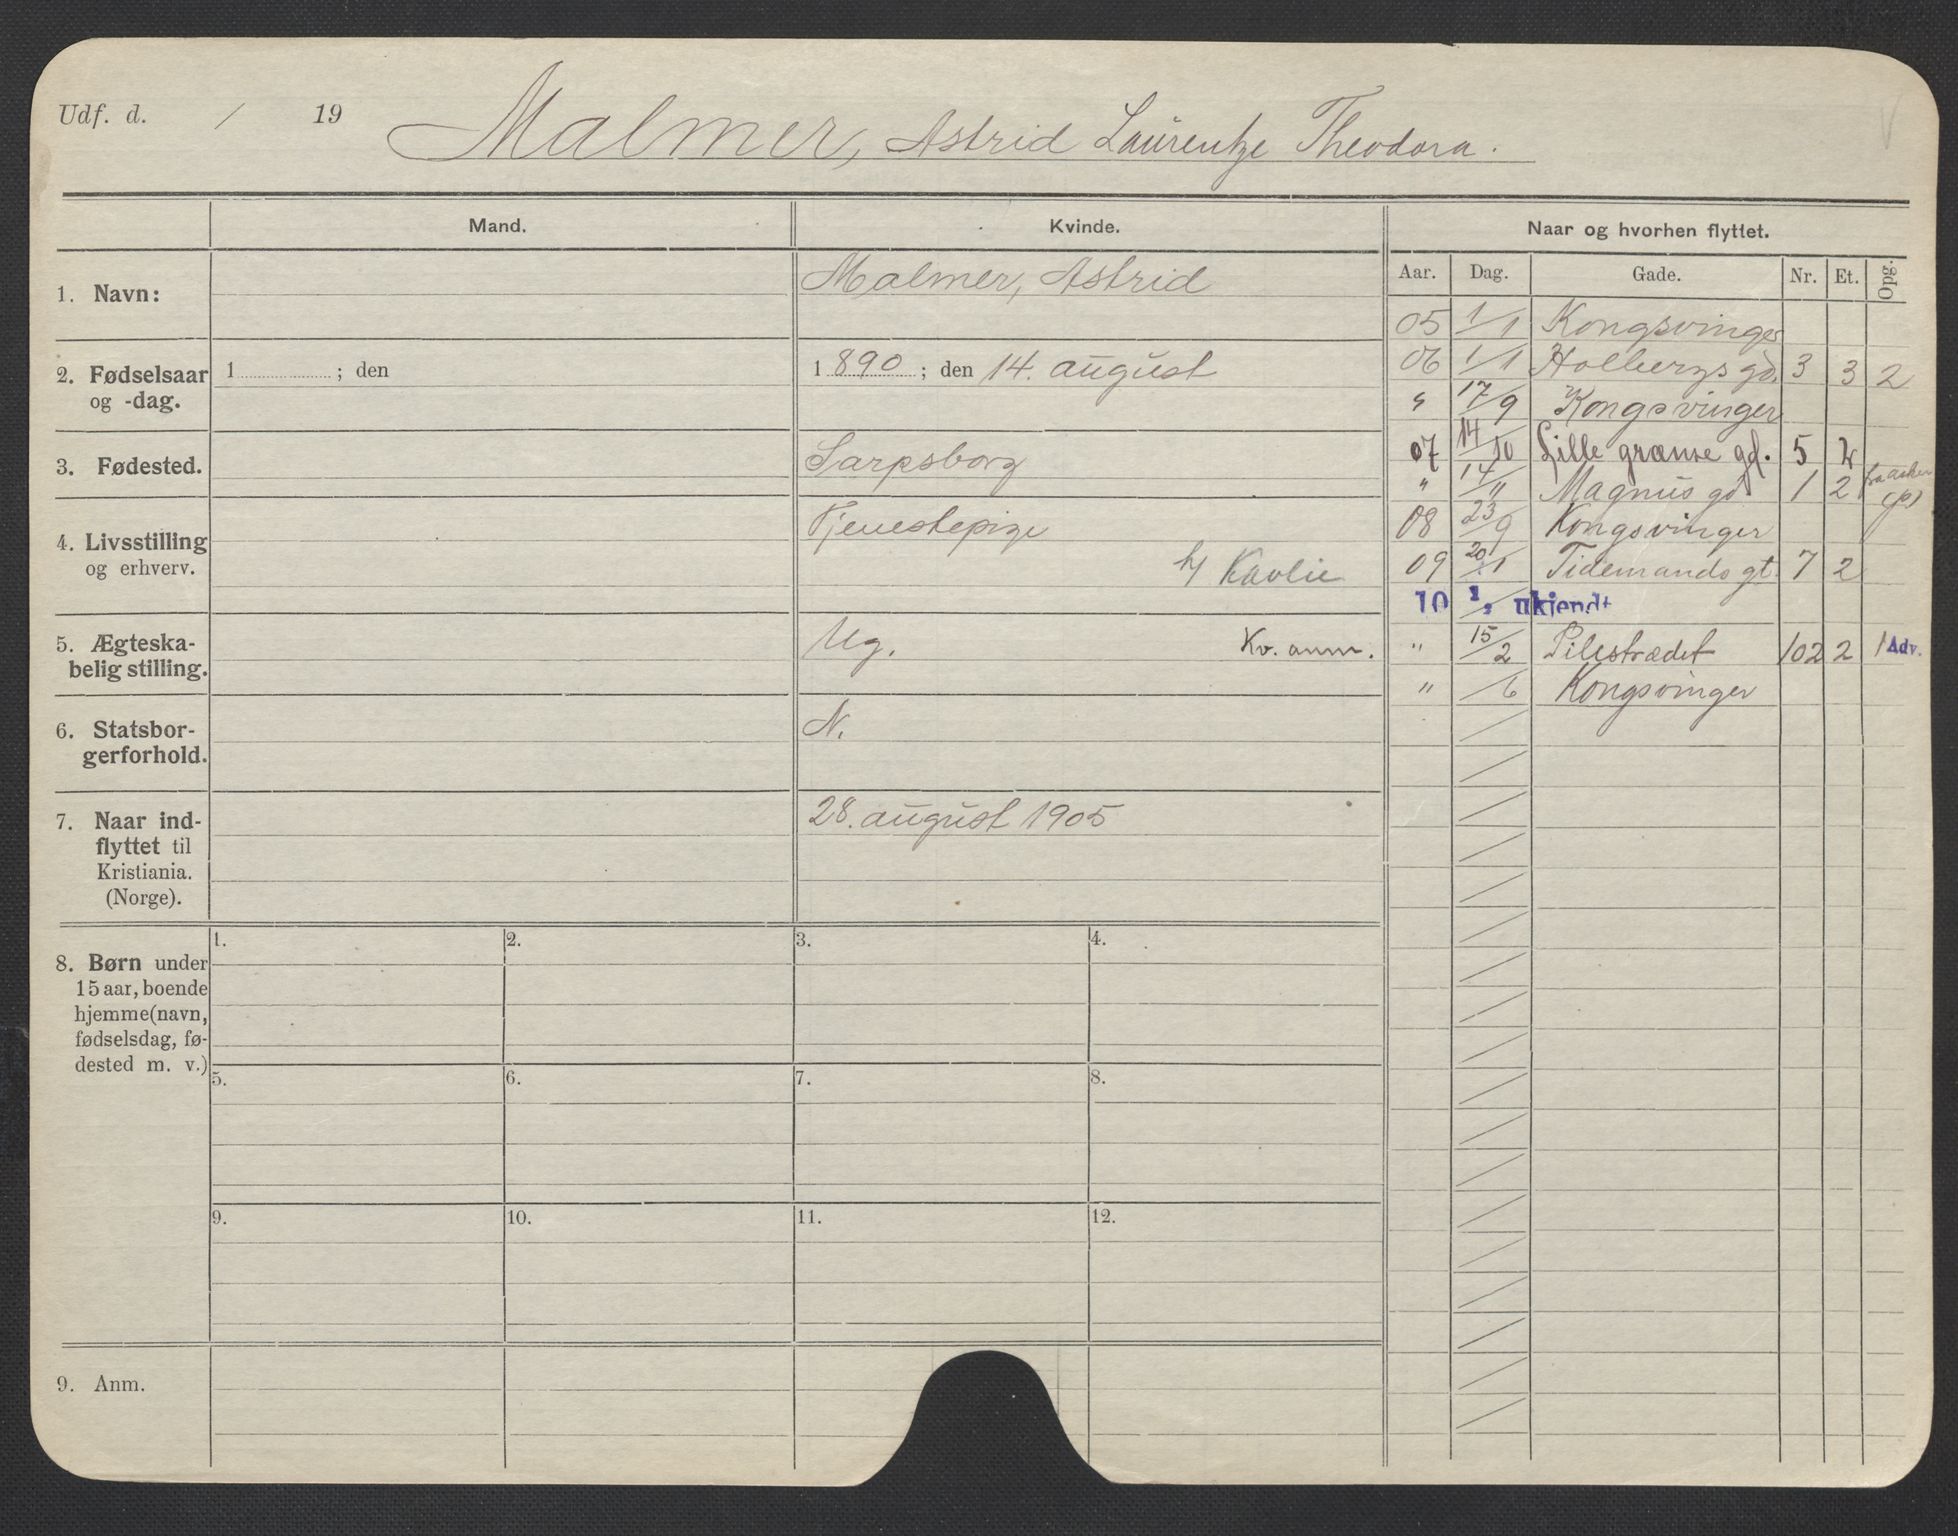 Udf. d. / 19
Malmer, Astrid Laurentze Theodora.
Mand. Kvinde. Naar og hvorhen flyttet.
Aar. Dag. Gade. Nr. Et. Opg.
1. Navn: Malmer, Astrid
2. Fødselsaar og -dag.
1 ; den
1890 ; den 14. august
3. Fødested. Sarpsborg
4. Livsstilling og erhverv.
Tjenestepige
h/ Kavlie
5. Ægteska-
belig stilling.
Ug. Kv. anm.
6. Statsbor-
gerforhold.
N.
7. Naar ind-
flyttet til
Kristiania.
(Norge).
28. august 1905
05 1/1 Kongsvinger
06 1/1 Holbergs gd. 3 3 2
" 17/9 Kongsvinger
07 14/10 Lille grænse gd. 5 4
" 14/" Magnus gd 1 2 fra Asker (p)
08 23/9 Kongsvinger
09 20/1 Tidemands gt. 7 2
10 1/2 ukjendt
" 15/2 Pilestrædet 102 2 1 Adv.
" /6 Kongsvinger
8. Børn under
15 aar, boende
hjemme (navn,
fødselsdag, fø-
dested m. v.)
1. 2. 3. 4.
5. 6. 7. 8.
9. 10. 11. 12.
9. Anm.